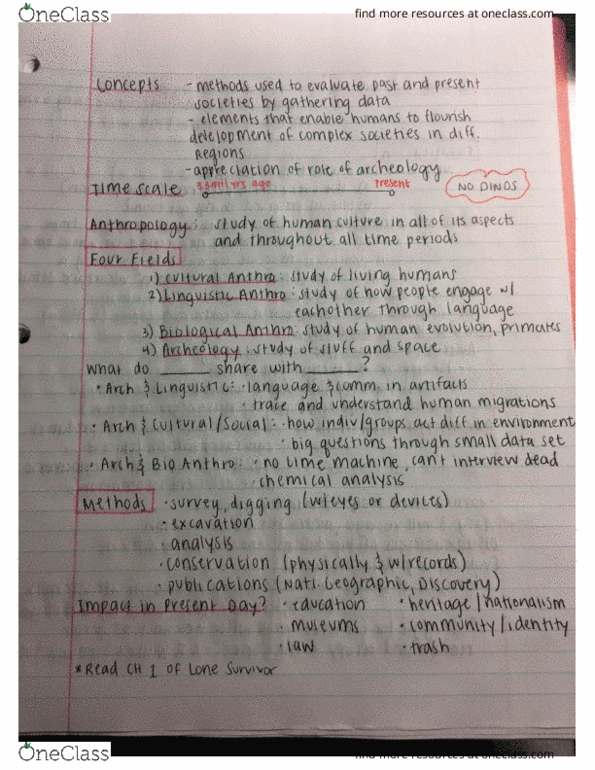 OneClass
find more resources at oneclass.com
Concepts - methods used to evaluate past and present
societies by gathering data
- elements that enable humans to flourish
development of complex societies in diff.
regions
- appreciation of role of archeology
Time scale 3.3 mil yrs ago present NO DINOS
Anthropology: study of human culture in all of its aspects
and throughout all time periods
Four Fields
1) Cultural Anthro: study of living humans
2) Linguistic Anthro: study of how people engage w/
eachother through language
3) Biological Anthro: study of human evolution, primates
4) Archeology: study of stuff and space
What do ____ share with ____?
• Arch & Linguistic: • language & comm. in artifacts
• trace and understand human migrations
• Arch & Cultural/Social: • how indiv/groups act diff in environment
• big questions through small data set
• Arch & Bio Anthro: • no time machine, can't interview dead
• chemical analysis
Methods • survey, digging (w/ eyes or devices)
• excavation
• analysis
• conservation (physically & w/ records)
• publications (Nat. Geographic, Discovery)
Impact in Present Day? • education • heritage/nationalism
• museums • community/identity
• law • trash
*Read CH 1 of Lone Survivor
OneClass
find more resources at oneclass.com